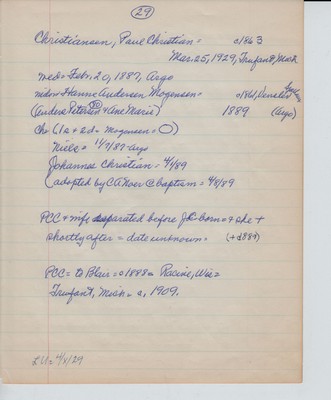 29
Christiansen, Paul Christian = c1863
Mar. 25, 1929, Trufant, Mich
wed = Feb. 20, 1887, Argo
Hanne Andersen Mogensen = c1861,
(Anders Petersen + Ane Marie) 1889 (Argo)
Ch: 6 (2s + 2d = Mogensen =
Niels = 11/7/87 = Argo
Johannes Christian = 4/1/89
(adopted by CA Hoer @ baptism = 4/8/89
PCC + wife separated before JC born = + she +
shortly after = date unknown = (+ c1889)
PCC = to Blair = c1888 = Racine, Wis =
Trufant, Mich = c, 1909.
LU = 4/3/29